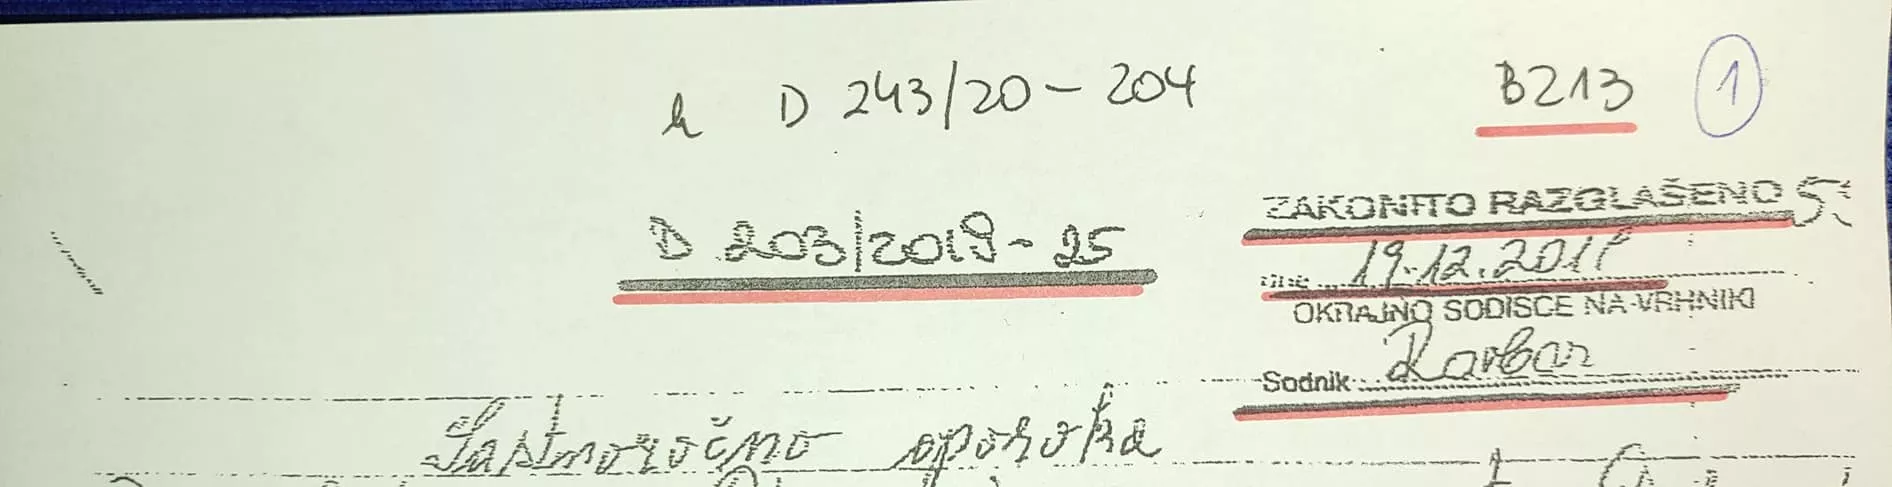 k D 243/20 - 204
B213
1
D 203/2019 - 25
ZAKONITO RAZGLAŠENO
dne 19.12.2019
OKRAJNO SODIŠČE NA VRHNIKI
Sodnik
Lastnoročno oporoka